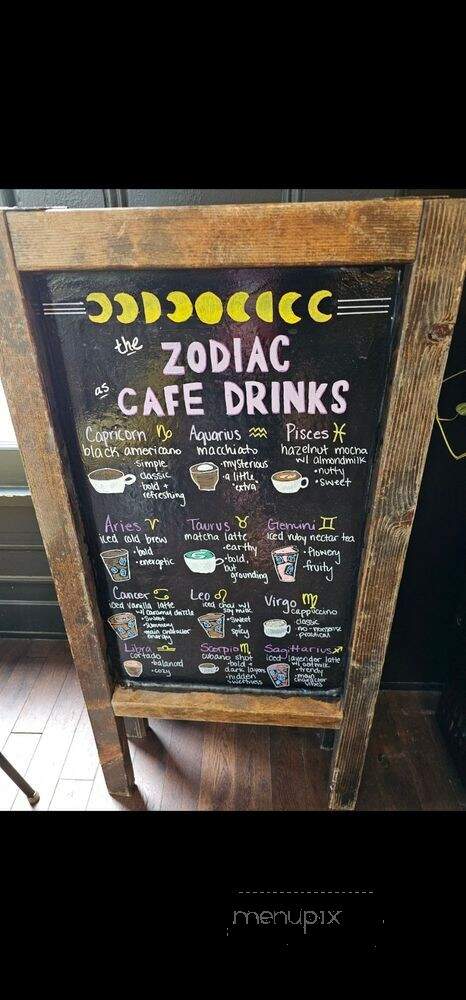 the
ZODIAC
as
CAFE DRINKS
Capricorn ♑
black americano
· simple
· classic
· bold +
refreshing
Aquarius ♒
macchiato
· mysterious
· a little
extra
Pisces ♓
hazelnut mocha
w/ almondmilk
· nutty
· sweet
Aries ♈
iced cold brew
· bold
· energetic
Taurus ♉
matcha latte
· earthy
· bold,
but
grounding
Gemini ♊
iced ruby nectar tea
· flowery
· fruity
Cancer ♋
iced vanilla latte
w/ caramel drizzle
· sweet
· summery
· main character
energy
Leo ♌
iced chai w/
soy milk
· sweet
+
spicy
Virgo ♍
cappuccino
· classic
· no-nonsense
· practical
Libra ♎
cortado
· balanced
· cozy
Scorpio ♏
cubano shot
· bold +
dark layers
· hidden
sweetness
Sagittarius ♐
iced lavender latte
w/ oatmilk
· trendy
· main
character
vibes
menupix